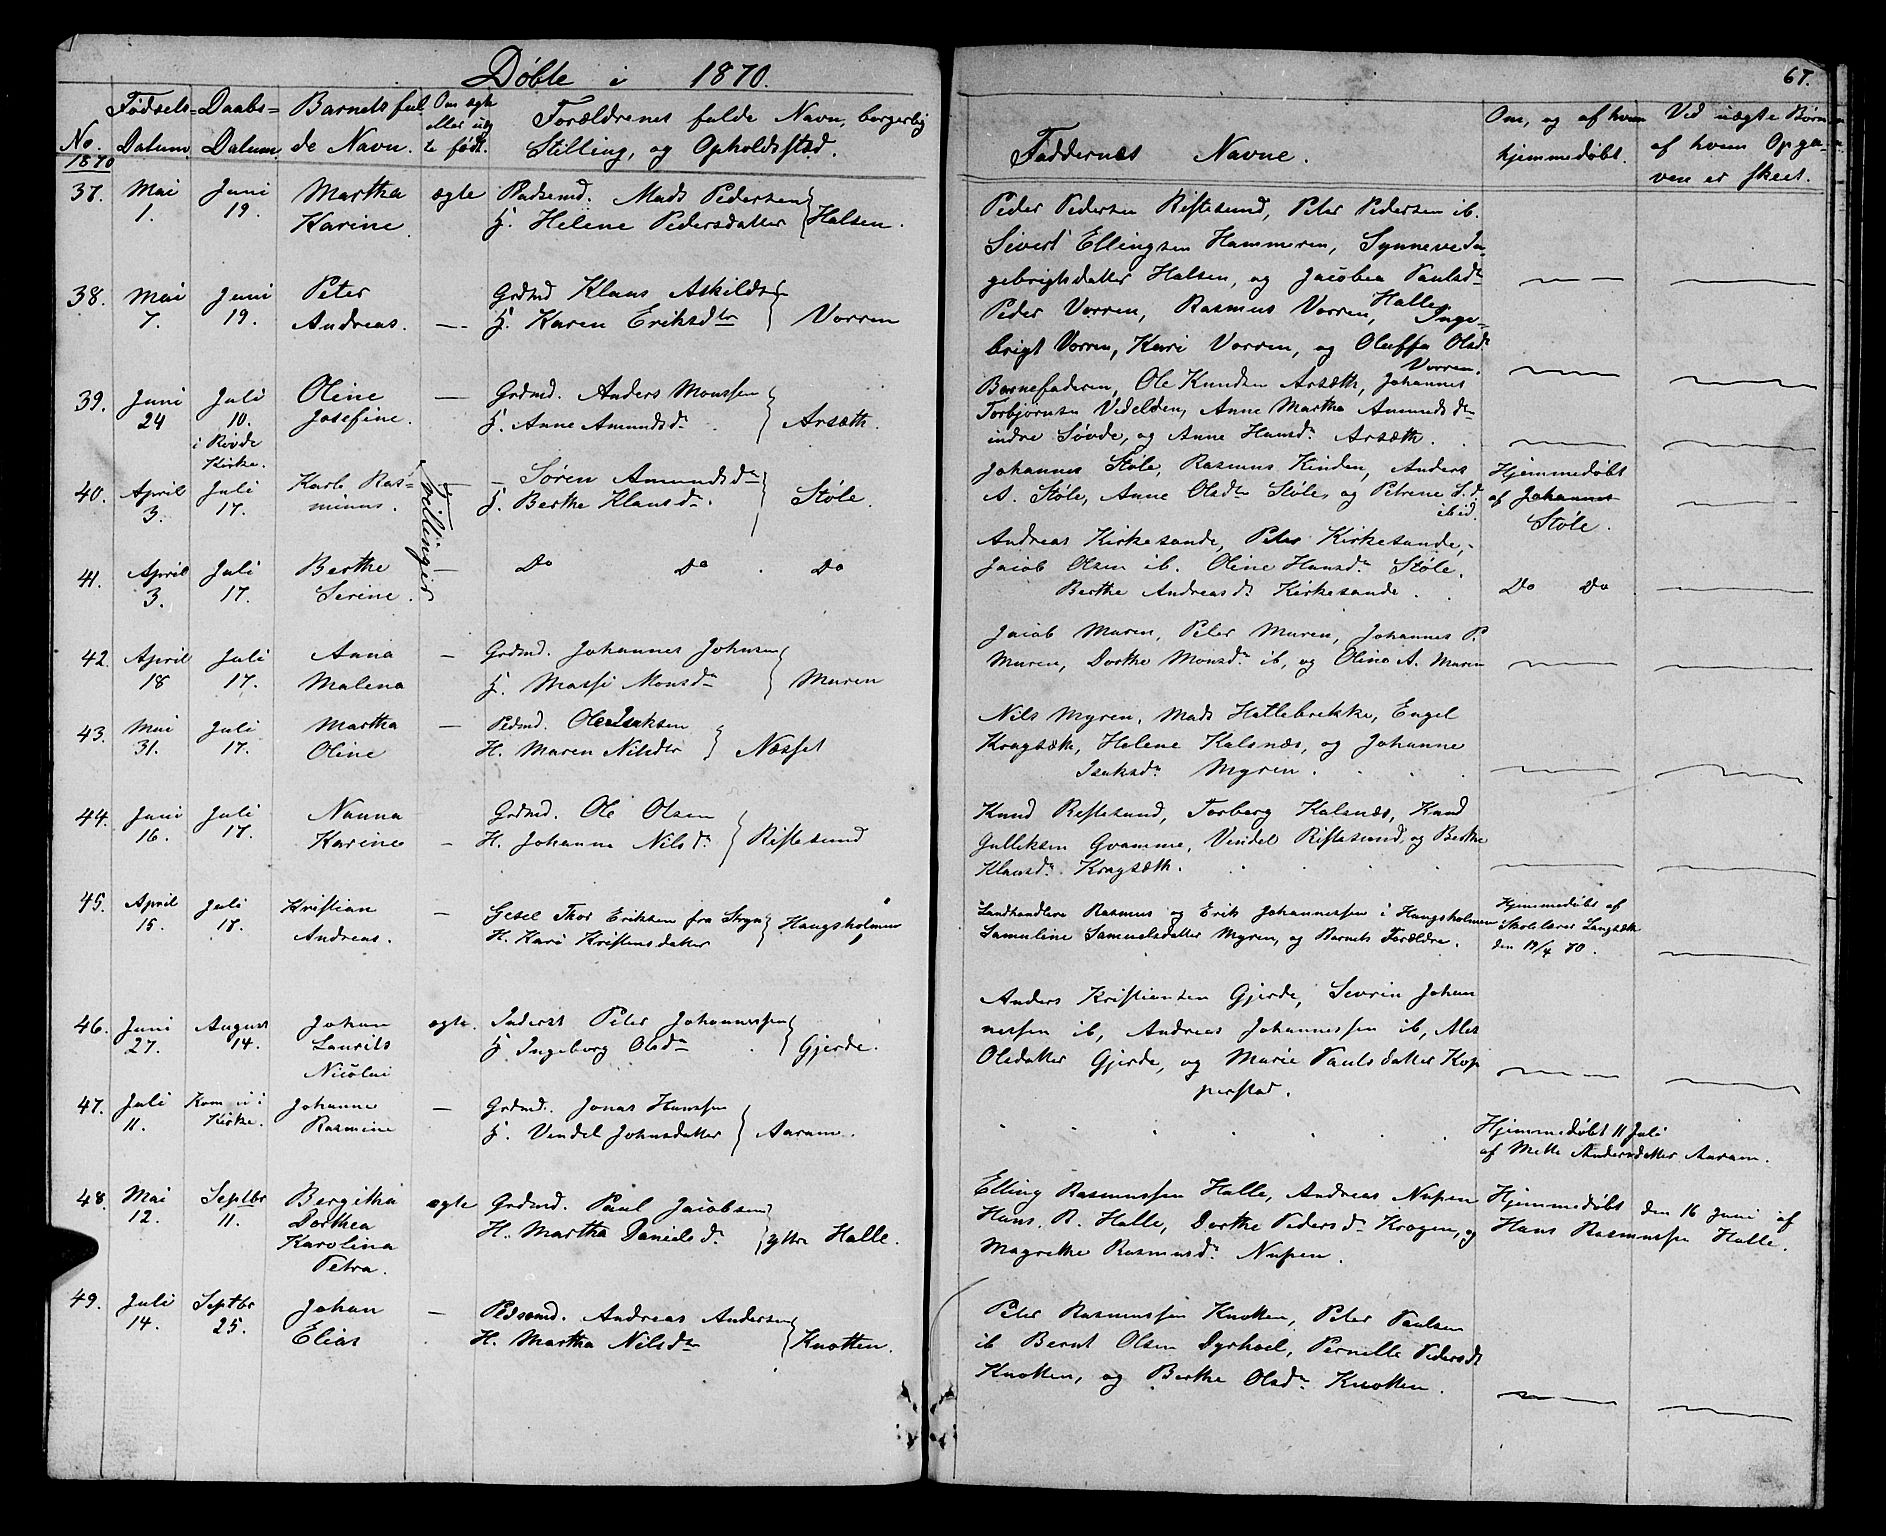 Døbte i 1870.
67.
No.
1870
Fødsels-
Datum.
Daabs-
Datum.
Barnets ful
de Navn.
Om ægte
eller uæg
te født.
Forældrenes fulde Navn, borgerlig
Stilling, og Opholdssted.
Faddernes Navne.
Om, og af hvem
hjemmedøbt.
Ved uægte Børn
af hvem Opga-
ven er skeet.
37. Mai 1. Juni 19. Martha
Karine. ægte Pladsmd. Mads Pedersen
H. Helene Pedersdatter } Halsen.
Peder Pedersen Riftesund, Peter Pedersen ib.
Sivert Ellingsen Hammeren, Synneve In
gebrigtsdatter Halsen, og Jacobea Paulsdr
Halle
38. Mai 7. Juni 19. Peter
Andreas. — Grdmd Klaus Askildsen
H. Karen Eriksdtr } Vorren
Peder Vorren, Rasmus Vorren, Inge-
brigt Vorren, Kari Vorren, og Oluffa Olsdr
Vorren.
39. Juni 24 Juli 10. i Rovde Kirke. Oline
Josefine. — Grdmd. Anders Monssen
H. Anne Amundsdr } Arsæth.
Barnefaderen, Ole Knudsen Arsæth, Johannes
Torbjørnsen Videlden, Anne Martha Amundsdr
indre Søvde, og Anne Hansdr Arsæth.
40. April 3. Juli 17. Karl Ras-
minus. Tvillinger — Søren Amundsdr
H. Berthe Klausdr } Støle.
Johannes Støle, Rasmus Kinden, Anders
A. Støle, Anne Olsdtr Støle, og Petrine S.d.
ibid.
Hjemmedøbt
af Johannes
Støle.
41. April 3. Juli 17. Berthe
Serine. — Do Do Do
Andreas Kirkesande, Peter Kirkesande,
Jacob Olsen ib. Oline Hansdr Støle.
Berthe Andreasdr Kirkesande.
Do Do
42. April 18 Juli 17. Anna
Malena — Grdmd. Johannes Johnsen
H. Massi Monsdr } Muren
Jacob Muren, Peter Muren, Johannes P.
Muren, Dorthe Monsdr ib, og Oline A. Muren
43. Mai 31. Juli 17. Martha
Oline — Pldsmd. Ole Isaksen
H. Maren Nilsdtr } Næsset
Nils Myren, Mads Hatlebrekke, Engel
Kragsæth, Helene Kalsnæs, og Johanne
Isaksdr Myren.
44. Juni 16. Juli 17. Nanna
Karine — Grdmd. Ole Olsen
H. Johanne Nilsdr } Riftesund
Knud Riftesund, Torberg Kalsnæs, Knud
Gulliksen Gvamme, Vendel Riftesund, og Berthe
Klausdr Kragsæth.
45. April 15. Juli 17. Kristian
Andreas. — Gesel Thor Eriksen fra Stryn
H. Kari Kristensdatter } Haugsholmen
Landhandlere Rasmus og Erik Johannessen i Haugsholmen
Samuline Samuelsdatter Myren, og Barnets Forældre.
Hjemmedøbt af
Skolelærer Langsæth
den 19/4 70.
46. Juni 27. August 14. Johan
Laurits
Nicolai ægte. Inderst Peter Johannessen
H. Ingeborg Olsdr } Gjerde.
Anders Kristiansen Gjerde, Sevrin Johan
nessen ib, Andreas Johannessen ib, Alet
Olsdatter Gjerde, og Marie Paulsdatter Kop
perstad.
47. Juli 11. Kom ei i Kirke. Johanne
Rasmine — Grdmd. Jonas Hanssen
H. Vendel Johnsdatter } Aaram.
Hjemmedøbt 11 Juli
af Mette Andersdatter Aaram.
48. Mai 12. Septbr 11. Bergitha
Dorthea
Karolina
Petra. ægte Grdmd. Paul Jacobsen
H. Martha Danielsdr } ytre Halle.
Elling Rasmussen Halle, Andreas Nupen
Hans. R. Halle, Dorthe Pedersdr Krogen, og
Magrethe Rasmusdr Nupen.
Hjemmedøbt den 16 Juni af
Hans Rasmussen Halle.
49. Juli 14. Septbr 25. Johan
Elias — Pldsmd. Andreas Andersen
H. Martha Nilsdtr } Knotten.
Peter Rasmussen Knotten, Peter Paulsen
ib Bernt Olsen Dyrhoel, Pernille Pedersdr
Knotten, og Berthe Olsdr Knotten.